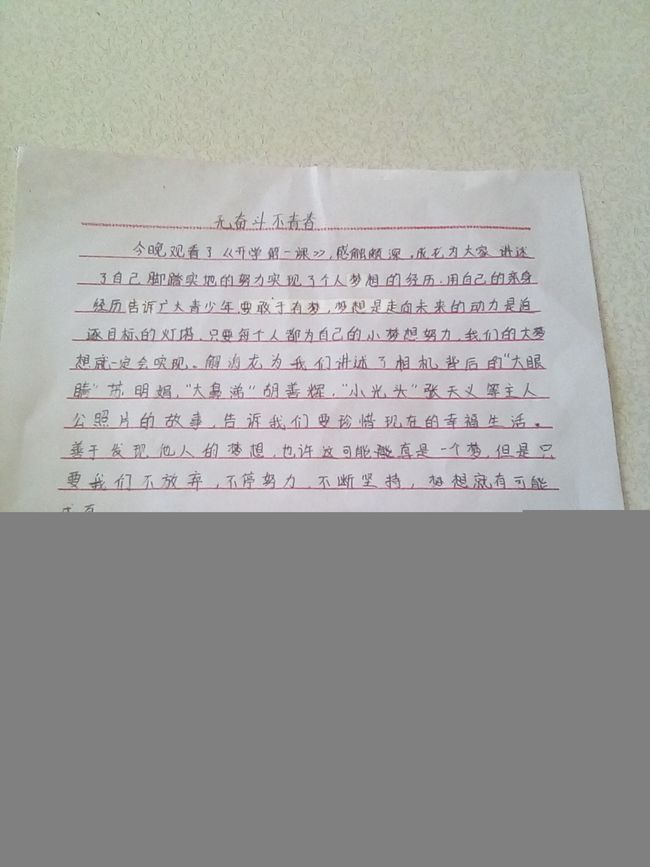 无奋斗不青春
今晚观看了《开学第一课》，感触颇深，成龙为大家讲述
了自己脚踏实地的努力实现了个人梦想的经历。用自己的亲身
经历告诉广大青少年要敢于有梦，梦想是走向未来的动力是追
逐目标的灯塔，只要每个人都为自己的小梦想努力，我们的大梦
想就一定会实现。解海龙为我们讲述了相机背后的“大眼
睛”苏明娟，“大鼻涕”胡善辉，“小光头”张天义等主人
公照片的故事，告诉我们要珍惜现在的幸福生活。
善于发现他人的梦想，也许这可能真是一个梦，但是只
要我们不放弃，不停努力，不断坚持，梦想就有可能